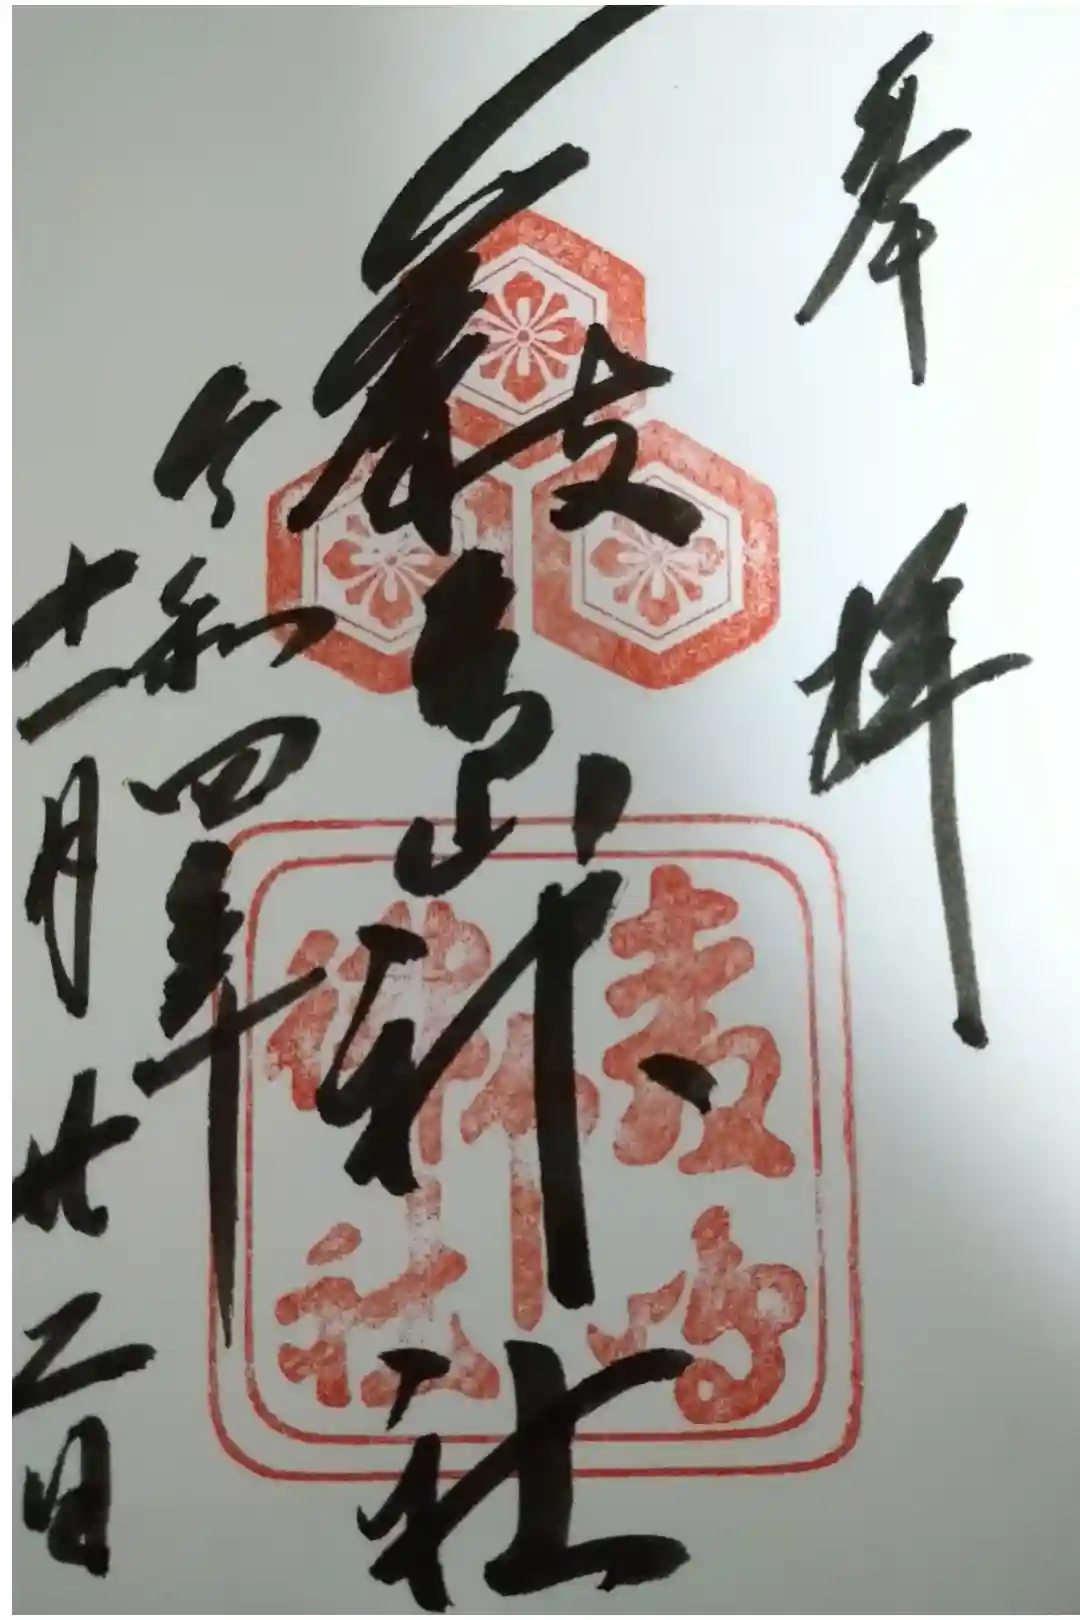 奉拝
厳島神社
令和四年
十一月廿二日